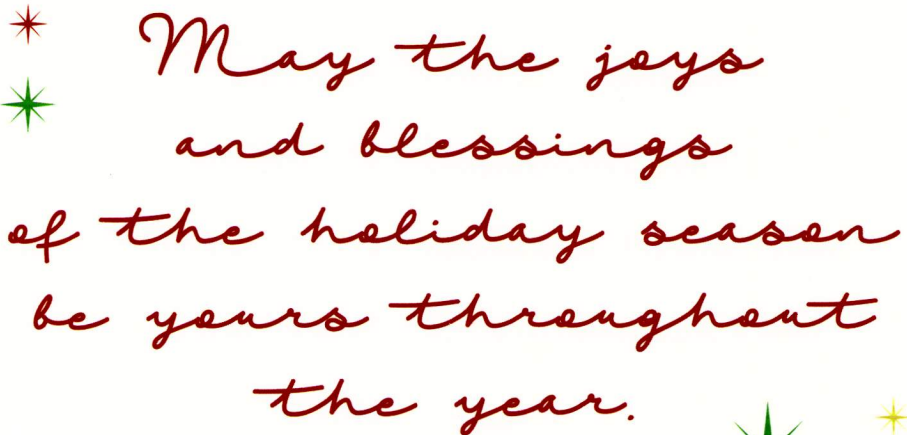 May the joys
and blessings
of the holiday season
be yours throughout
the year.